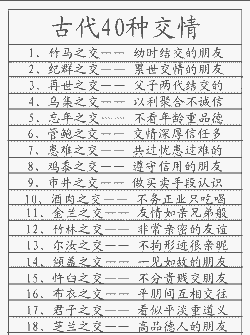 古代40种交情
1、竹马之交—— 幼时结交的朋友
2、纪群之交—— 累世交情的朋友
3、再世之交—— 父子两代结交的
4、乌集之交—— 以利聚合不诚信
5、忘年之交—— 不看年龄重品德
6、管鲍之交—— 交情深厚信任多
7、患难之交—— 共过忧患过难的
8、鸡黍之交—— 遵守信用的朋友
9、市井之交—— 做买卖手段认识
10、酒肉之交—— 不务正业只吃喝
11、金兰之交—— 友情如亲兄弟般
12、竹林之交—— 非常亲密的友谊
13、尔汝之交—— 不拘形迹很亲昵
14、倾盖之交—— 一见如故的朋友
15、忤臼之交—— 不分贵贱交朋友
16、布衣之交—— 平朋间互相交往
17、君子之交—— 看似平淡重道义
18、芝兰之交—— 高品德人的朋友